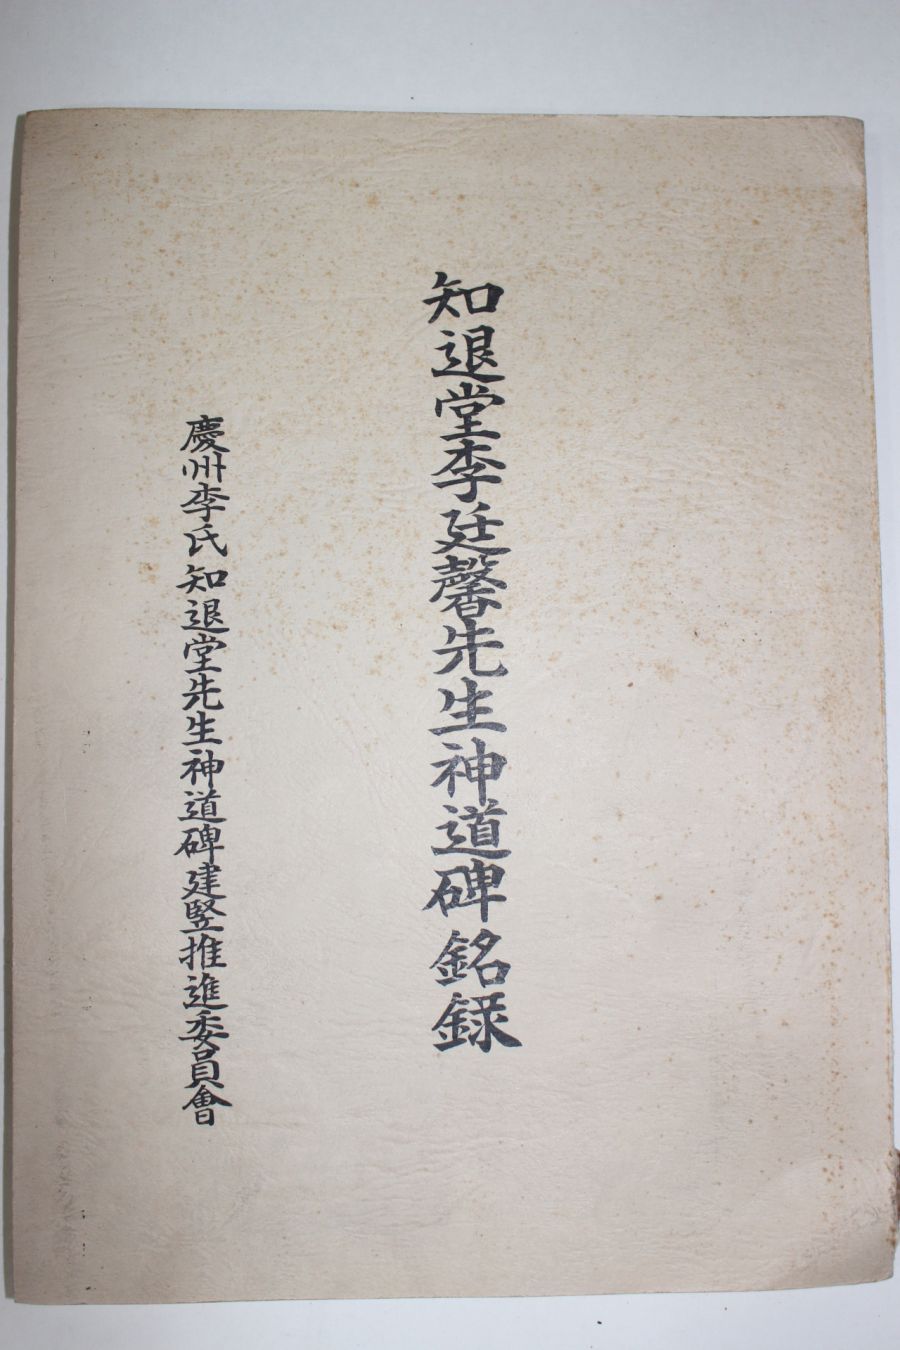 知退堂李廷馨先生神道碑銘録
慶州李氏知退堂先生神道碑建竪推進委員會